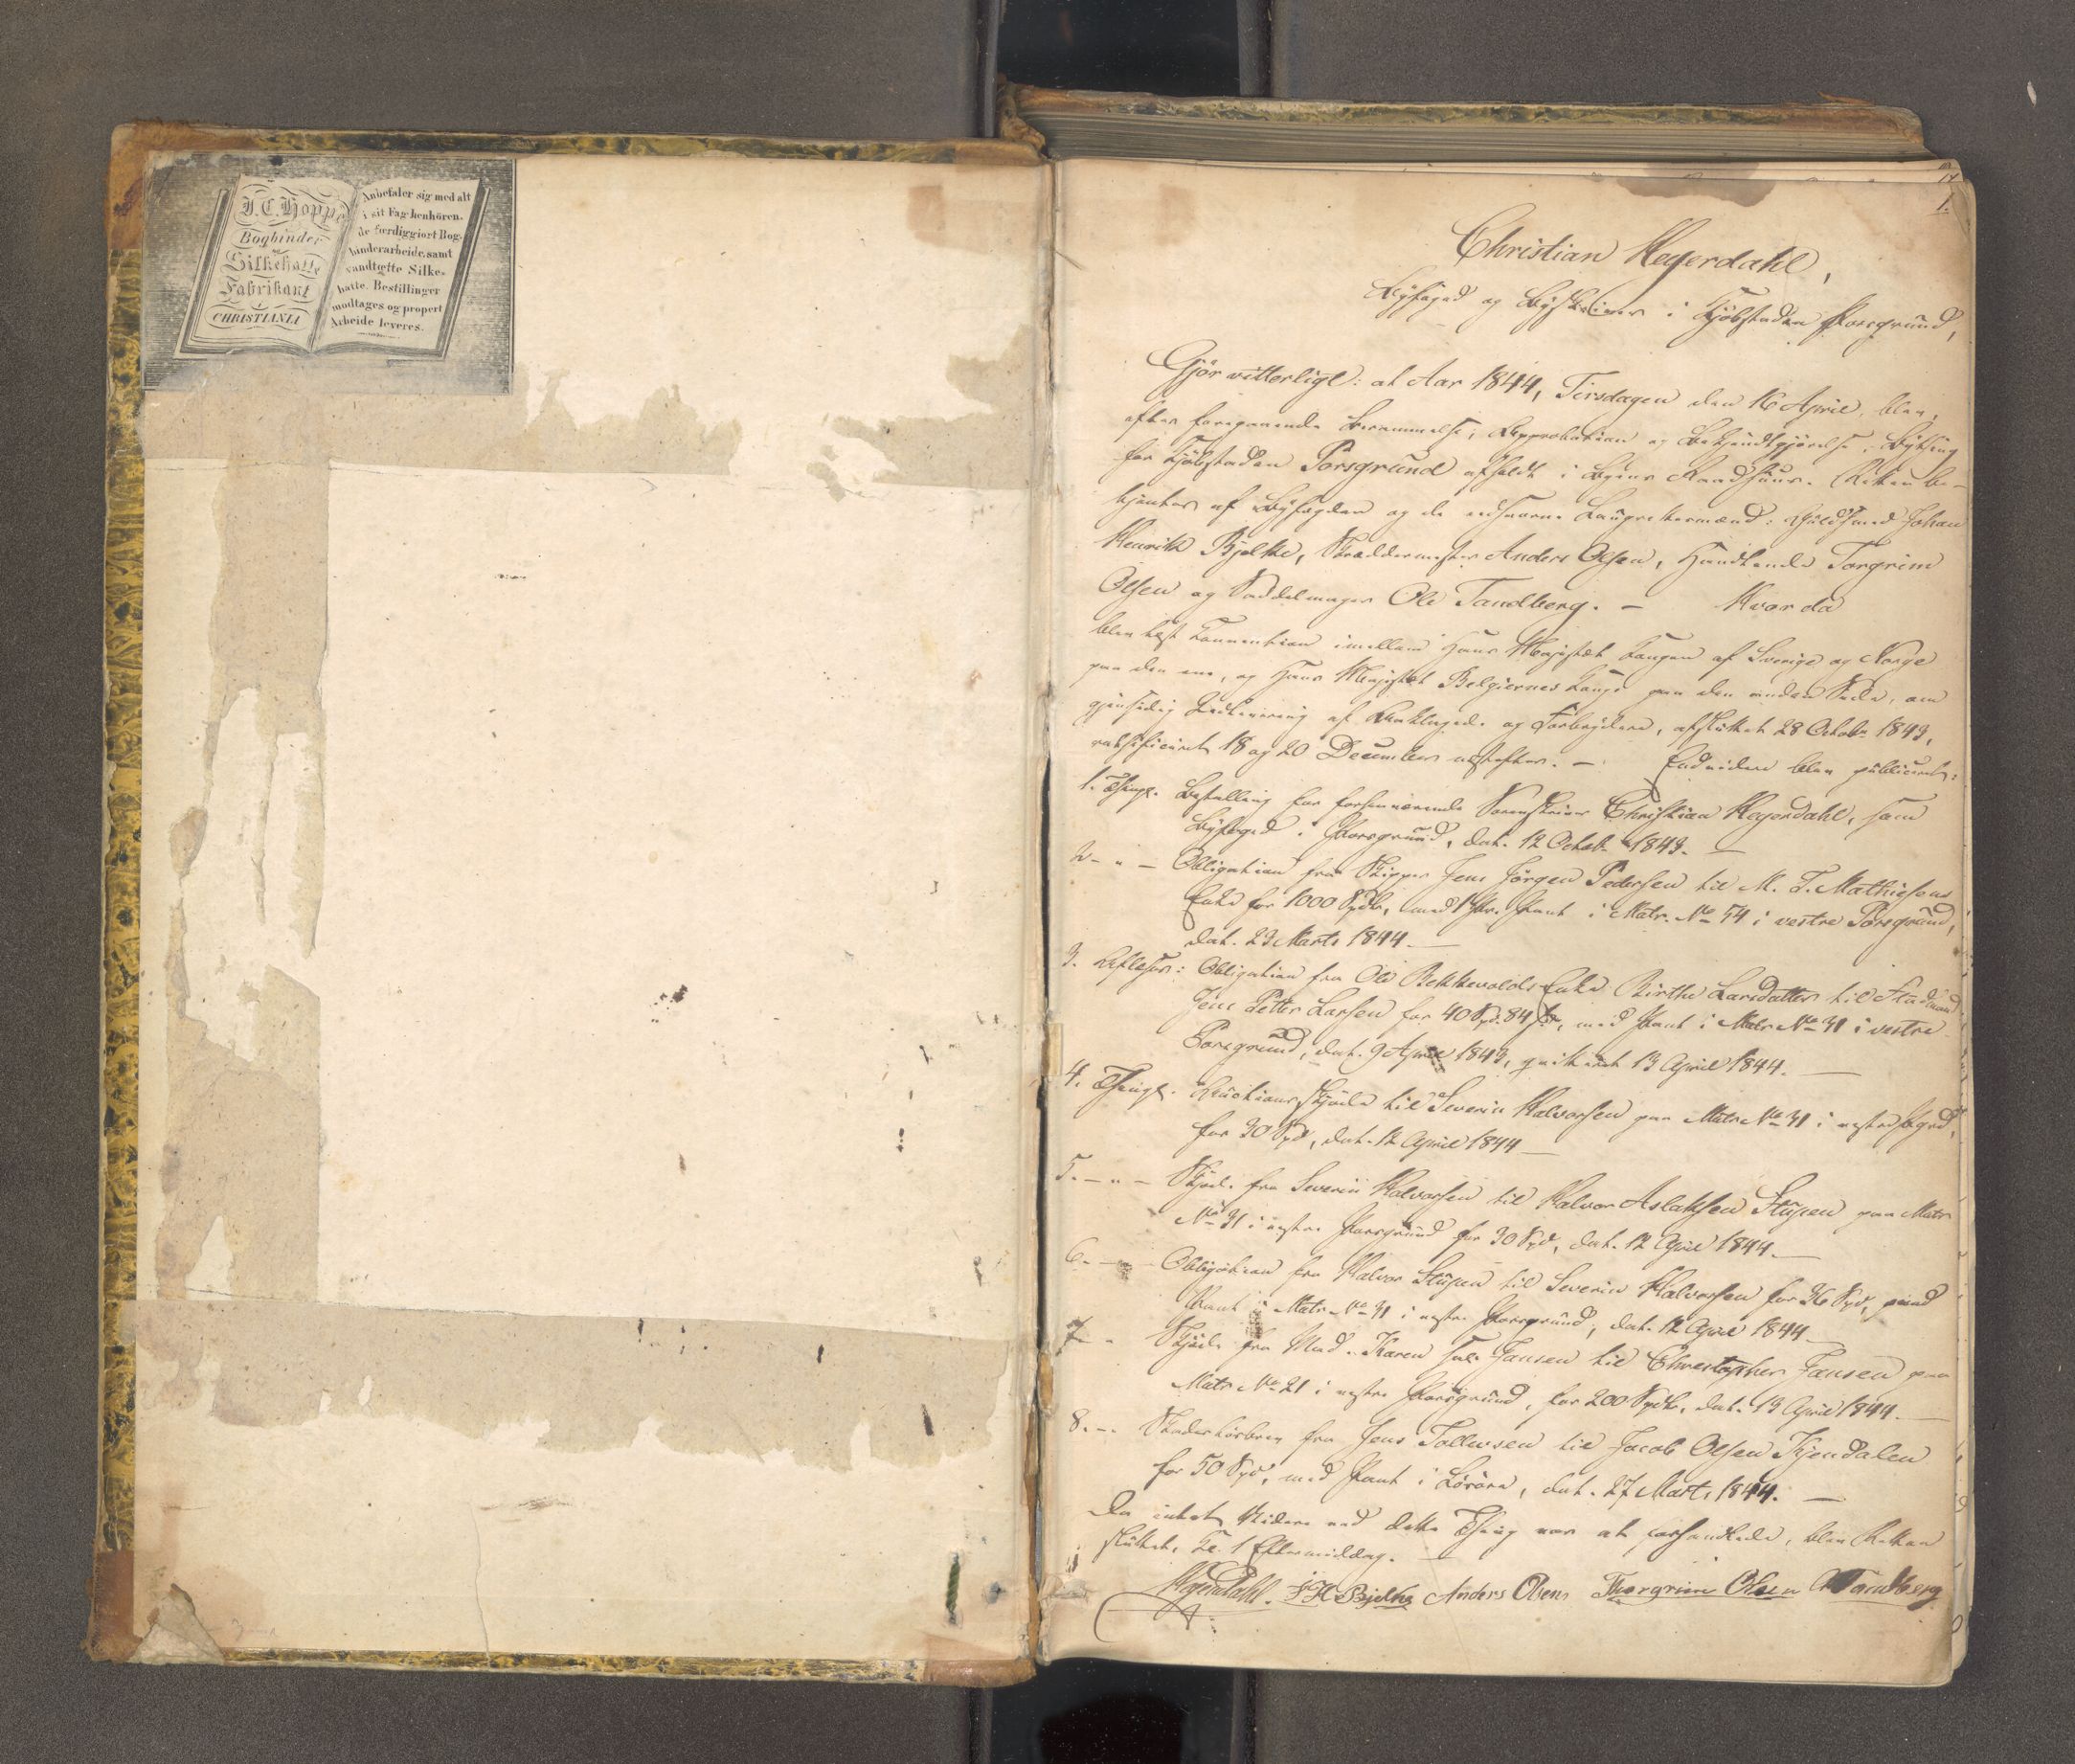 J. C. Hoppe
Bogbinder
og
Silkehatte
Fabrikant
i
CHRISTIANIA
Anbefaler sig med alt
i sit Fag henhören-
de færdiggiort Bog-
binderarbeide, samt
vandtætte Silke-
hatte. Bestillinger
modtages og propert
Arbeide leveres.
1.
Christian Heyerdahl,
Byfoged og Byskriver i Kjöbstaden Porsgrund,
Gjör vitterligt: at Aar 1844, Tirsdagen den 16 April, blev,
efter foregaaende Berammelse, Approbation og Bekjendtgjörelse, Bything
for Kjöbstaden Porsgrund afholdt i Byens Raadhuus. Retten be-
tjentes af Byfogden og de eedsvorne Laugrettesmænd: Guldsmed Johan
Henrik Bjelke, Skræddermester Anders Olsen, Handlende Torgrim
Olsen og Saddelmager Ole Tandberg. – Hvor da
blev læst Convention imellem Hans Majestæt Kongen af Sverige og Norge
paa den ene, og Hans Majestæt Belgiernes Konge paa den anden Side, om
gjensidig Udlevering af Anklagede og Forbrydere, afsluttet 28 Octobr 1843,
ratificeret 18 og 20 December næstefter. – Endvidere blev publiceret:
1. Thingl. Bestalling for forhenværende Sorenskriver Christian Heyerdahl, som
Byfoged i Porsgrund, dat. 12 Octob. 1843. –
2 - " - Obligation fra Skipper Jens Jörgen Pedersen til M. T. Mathiesens
Enke for 1000 Spdlr, med 1 Pr. Pant i Matr. No 54 i vestre Porsgrund,
dat. 23 Marts 1844. –
3. Aflæses: Obligation fra Ole Bekkevolds Enke Birthe Larsdatter til
Jens Petter Larsen for 40 Spd. 84 s, med Pant i Matr No 31 i vestre
Porsgrund, dat. 9 April 1843, qvitteret 13 April 1844. –
4. Thingl. Auctionsskjöde til Severin Halvorsen paa Matr No 31 i vestre Pgrd,
for 30 Spd, dat. 12 April 1844 –
5. - " - Skjöde fra Severin Halvorsen til Halvor Aslaksen Stupen paa Matr
No 31 i vestre Porsgrund for 30 Spd, dat. 12 April 1844. –
6. - " - Obligation fra Halvor Stupen til Severin Halvorsen for 36 Spd, med
Pant i Matr No 31 i vestre Porsgrund, dat. 12 April 1844 –
7 - " Skjöde fra Mad. Karen sal. Jansen til Christopher Jansen paa
Matr No 21 i vestre Porsgrund, for 200 Spdlr, dat. 13 April 1844. –
8. -". Skadeslösbrev fra Jens Tollevsen til Jacob Olsen Kjendalen
for 50 Spd, med Pant i Lösöre, dat. 27 Marts 1844. –
Da intet Videre ved dette Thing var at forhandlede, blev Retten
sluttet, Kl. 1 Eftermiddag. –
Heyerdahl. J H Bjelke Anders Olsen Thorgrim Olsen O Tandberg